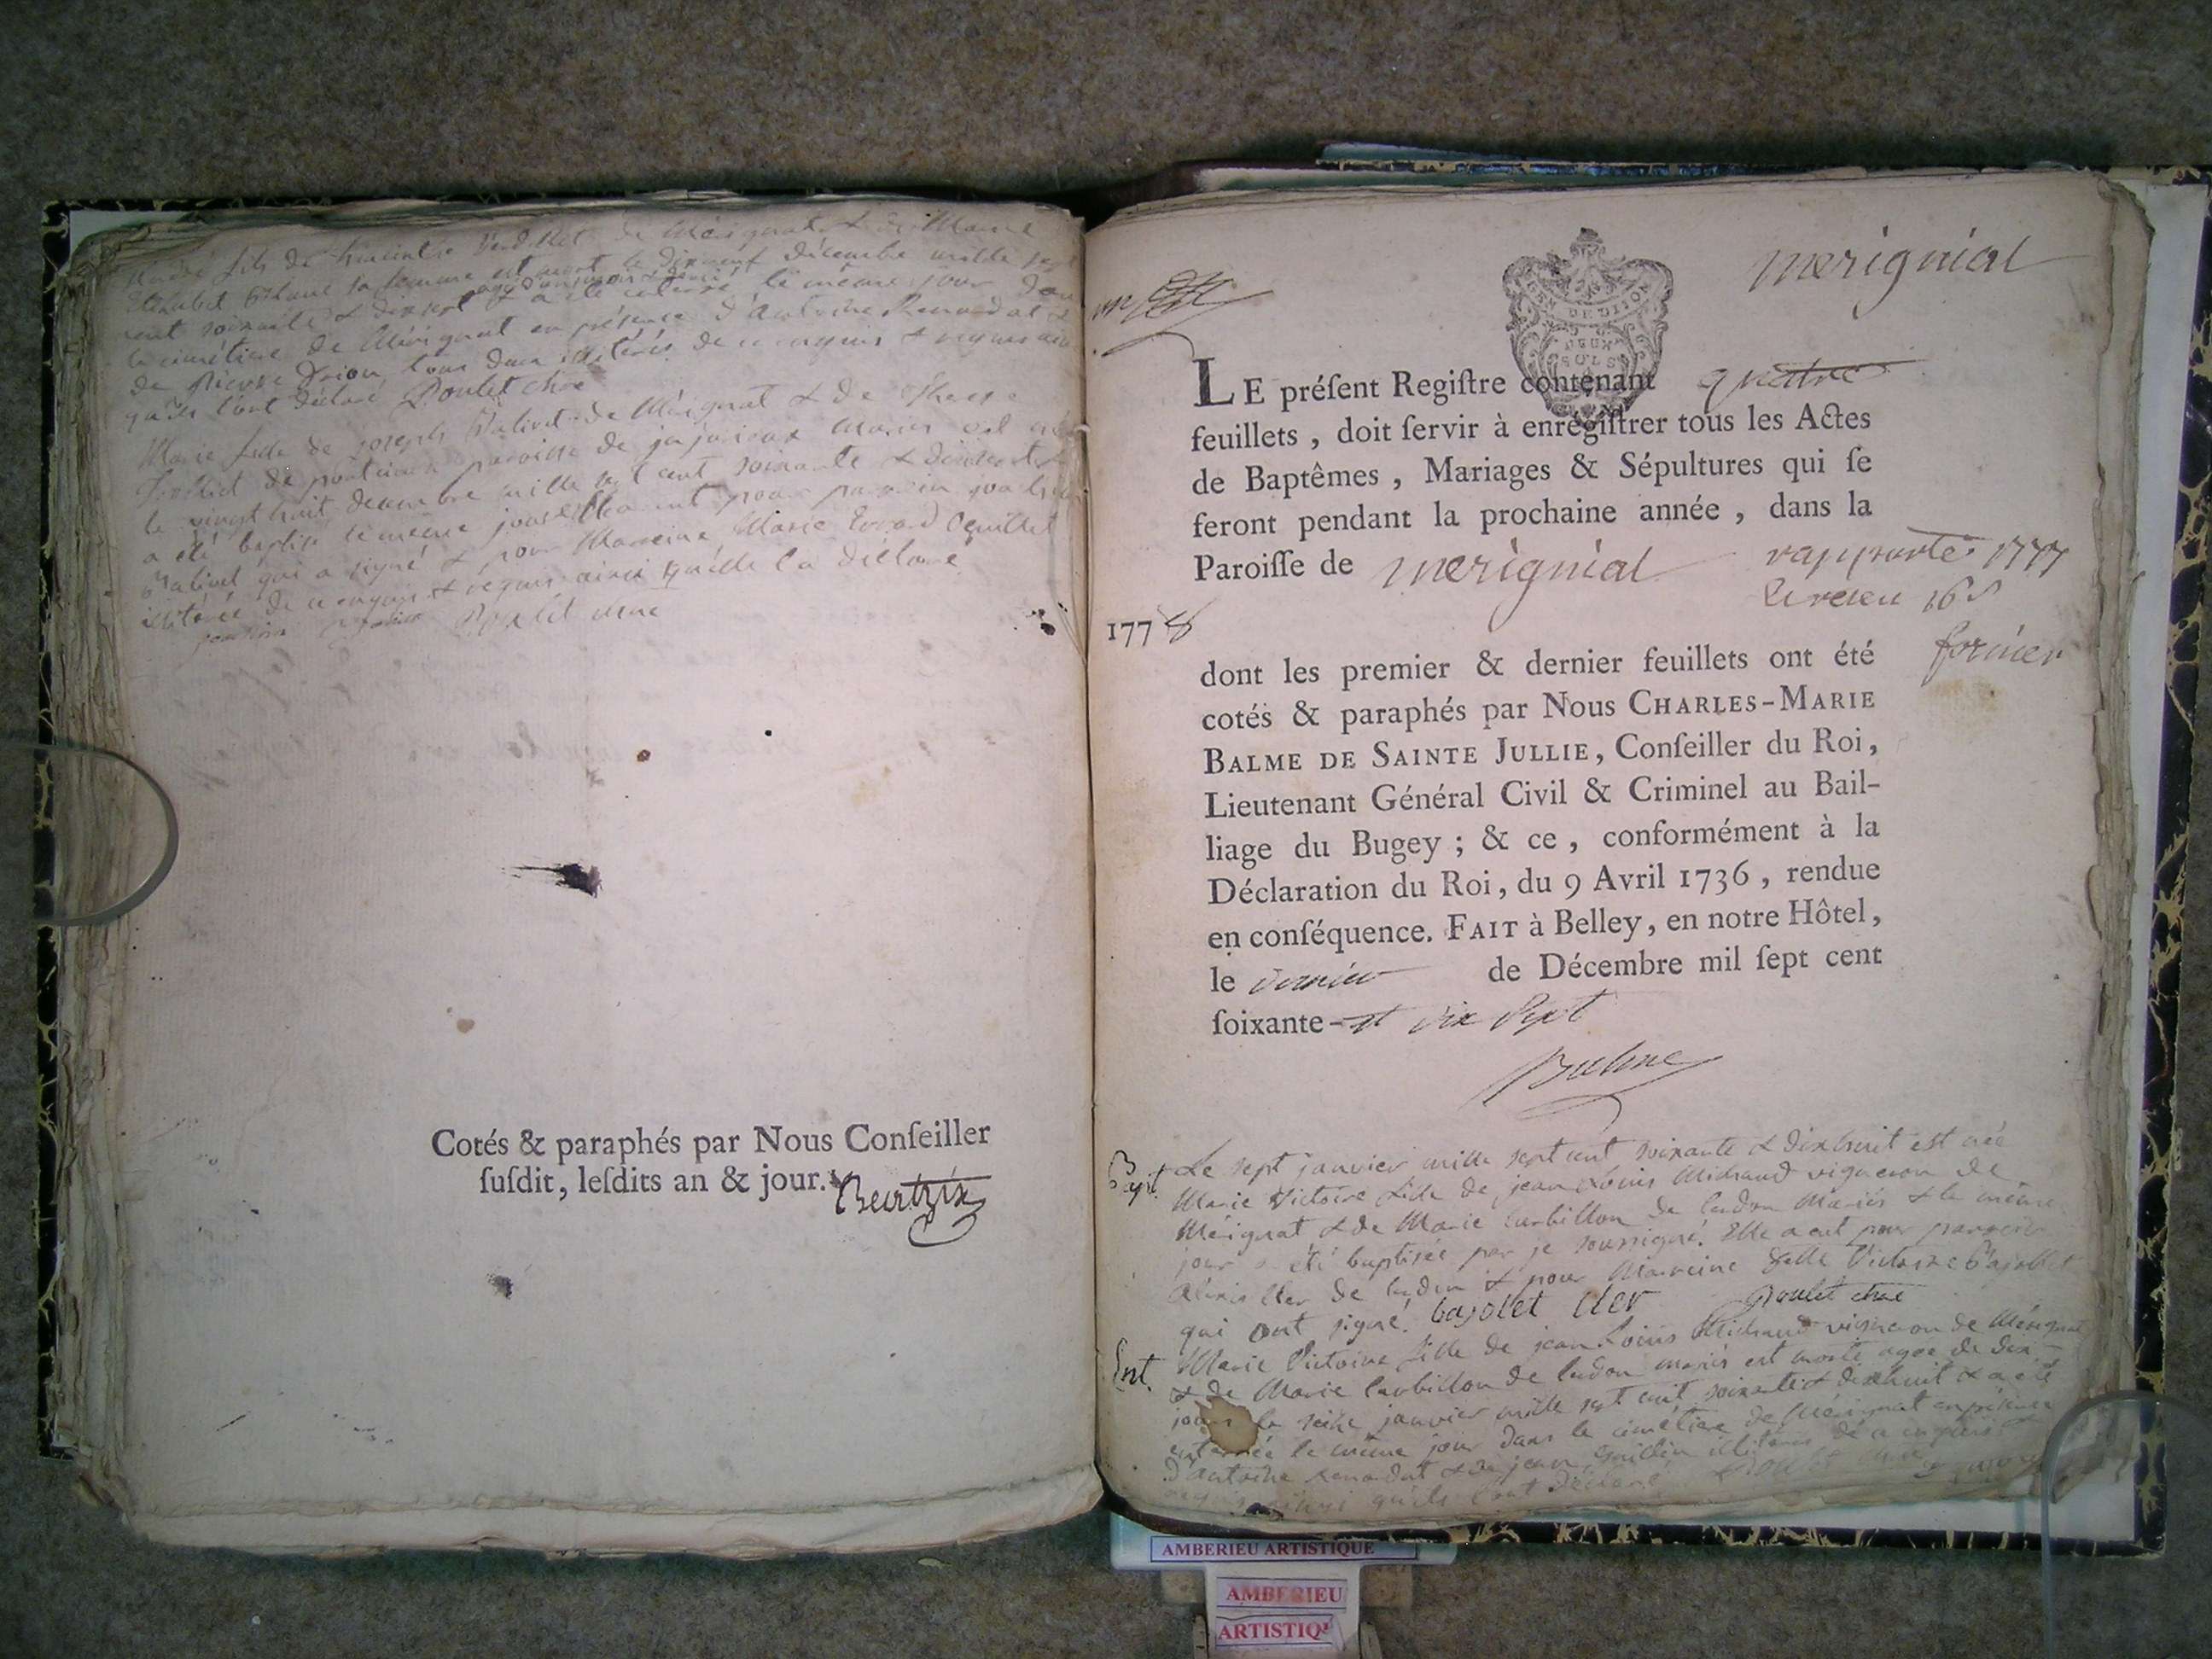 André fils de Verdillet de Mérignat & de Marie
sa femme est mort le dixneuf décembre mille sept
cent soixante & dixsept & a été enterré le même jour dans
le cimétiere de Mérignat en présence d'Antoine Renardat &
de Pierre Orion tous deux illiterés de ce enquis & requis ainsi
qu'ils l'ont déclaré Poulet curé
Marie fille de joseph de Mérignat & de
de paroisse de jujurieux mariés est née
le vingt huit decembre mille sept cent soixante & dixsept &
a été baptisé le même jour pour parrein joachim
qui a signé & pour Marreine Marie
illiterée de ce enquis & requis ainsi qu'elle l'a déclaré
Poulet curé
Cotés & paraphés par Nous Conſeiller
ſuſdit, leſdits an & jour.
merignial
GEN DE DIJON
DEUX
SOLS
LE préſent Regiſtre contenant quatre
feuillets, doit ſervir à enregiſtrer tous les Actes
de Baptêmes, Mariages & Sépultures qui ſe
feront pendant la prochaine année, dans la
Paroiſſe de merignial
rapporté 1777
16 s
1778
dont les premier & dernier feuillets ont été
cotés & paraphés par Nous CHARLES-MARIE
BALME DE SAINTE JULLIE, Conſeiller du Roi,
Lieutenant Général Civil & Criminel au Bail-
liage du Bugey ; & ce, conformément à la
Déclaration du Roi, du 9 Avril 1736, rendue
en conſéquence. FAIT à Belley, en notre Hôtel,
le dernier de Décembre mil ſept cent
ſoixante-et dix sept
Balme
Bapt. Le sept janvier mille sept cent soixante & dixhuit est née
Marie Victoire fille de jean Louis Michaud vigneron de
Mérignat & de Marie Curbillon de Cerdon Mariés & le même
jour a été baptisée par je soussigné. Elle a eut pour parrein
Alexis Cler de Cerdon & pour Marreine Delle Victoire Bajollet
qui ont signé. bajolet cler Poulet curé
Ent. Marie Victoire fille de jean Louis Michaud vigneron de Mérignat
& de Marie Curbillon de Cerdon mariés est morte agée de dix
jours le seize janvier mille sept cent soixante & dixhuit & a été
enterrée le même jour dans le cimétiere de Mérignat en présence
d'Antoine Renardat & de jean Guillin illiterés de ce enquis &
requis ainsi qu'ils l'ont déclaré Poulet curé
AMBERIEU ARTISTIQUE
AMBERIEU
ARTISTIQ